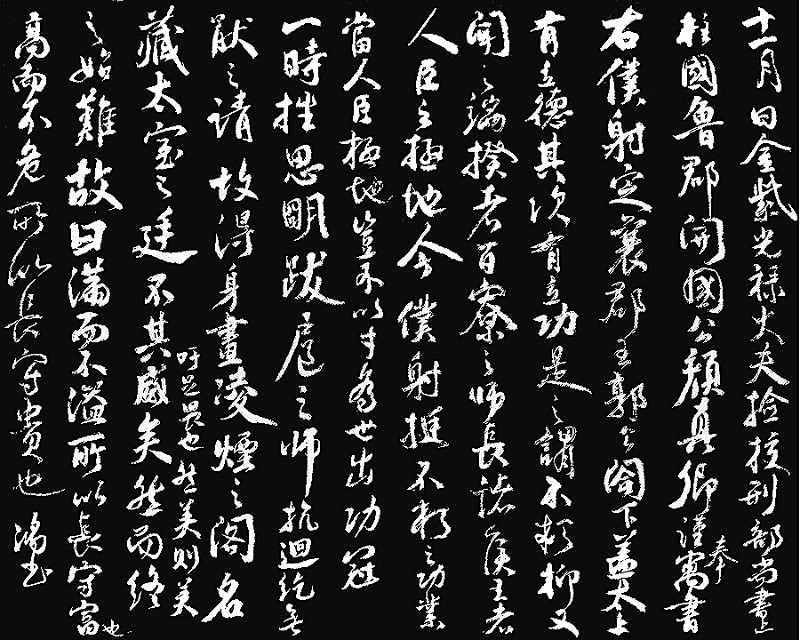 十一月日金紫光禄大夫撿挍刑部尚書上
柱國魯郡開國公顔真卿謹奉寓書
右僕射定襄郡王郭公閤下蓋太上
有立德其次有立功是之謂不朽抑又
聞之端揆者百寮之師長諸侯王者
人臣之極地今僕射挺不朽之功業
當人臣極地豈不以才為世出功冠
一時挫思明跋扈之師抗迴紇無
猒之請故得身畫凌煙之閣名
吁足畏也然美則美
藏太室之廷不其威矣然而終
之始難故曰滿而不溢所以長守富也
高而不危所以長守貴也